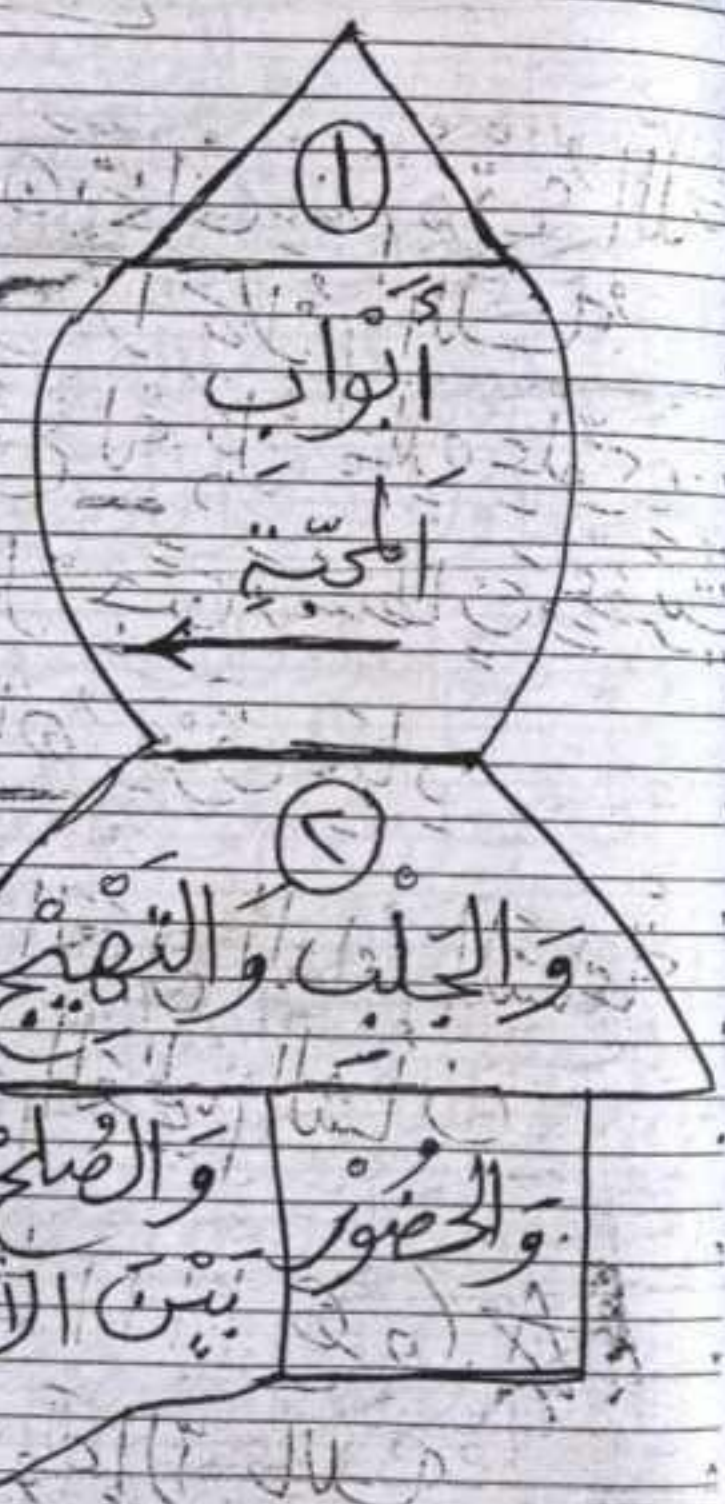 ١
أَبْوَابَ
اَلمحبّةِ
٢
وَالجَلْبِ وَالتَهْيِيْج
وَالحُضُوْر
وَالصُلح
بَيْنَ